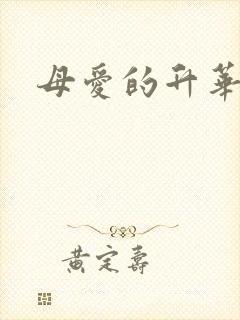 母爱的升华
黄定寿